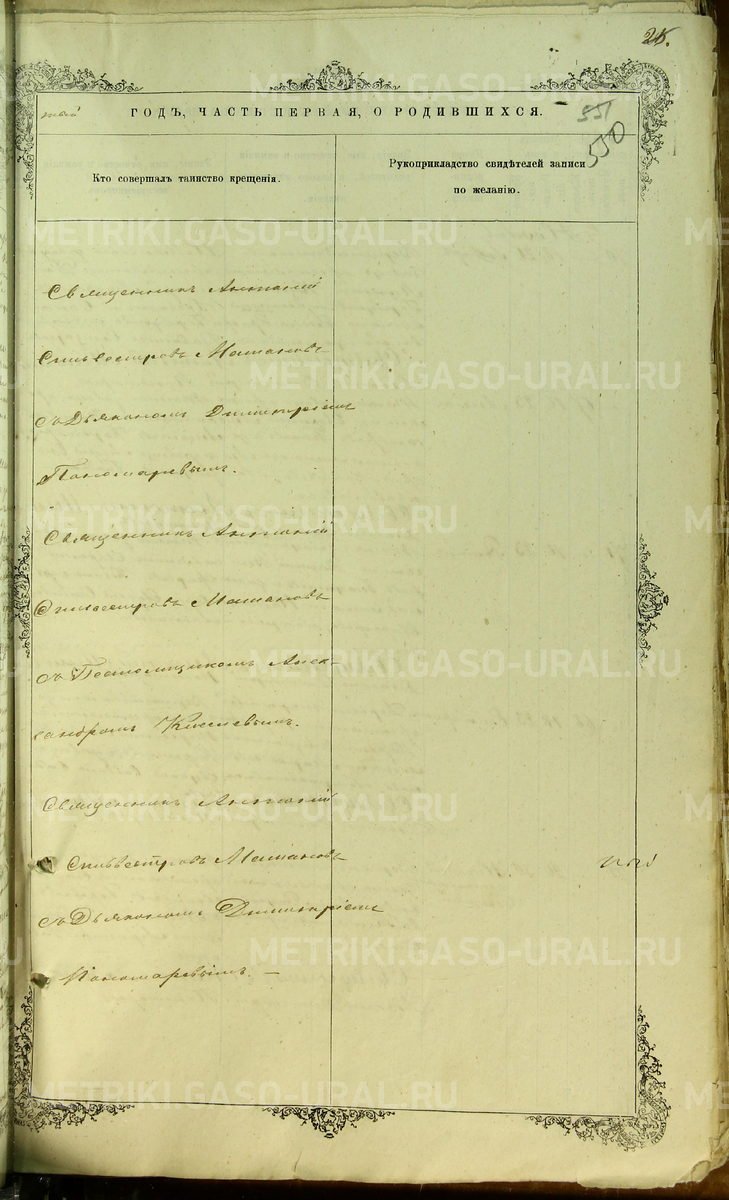 25.
тый ГОДЪ, ЧАСТЬ ПЕРВАЯ, О РОДИВШИХСЯ. 551
550
Кто совершалъ таинство крещенія.
Рукоприкладство свидѣтелей записи
по желанію.
Священникъ Антоній
Сильвестровъ Матановъ
съ Дьякономъ Димитріемъ
Пономаревымъ.
Священникъ Антоній
Сильвестровъ Матановъ
съ Псаломщикомъ Алек-
сандромъ Киселевымъ.
Священникъ Антоній
Сильвестровъ Матановъ
съ Дьякономъ Димитріемъ
Пономаревымъ. —
METRIKI.GASO-URAL.RU